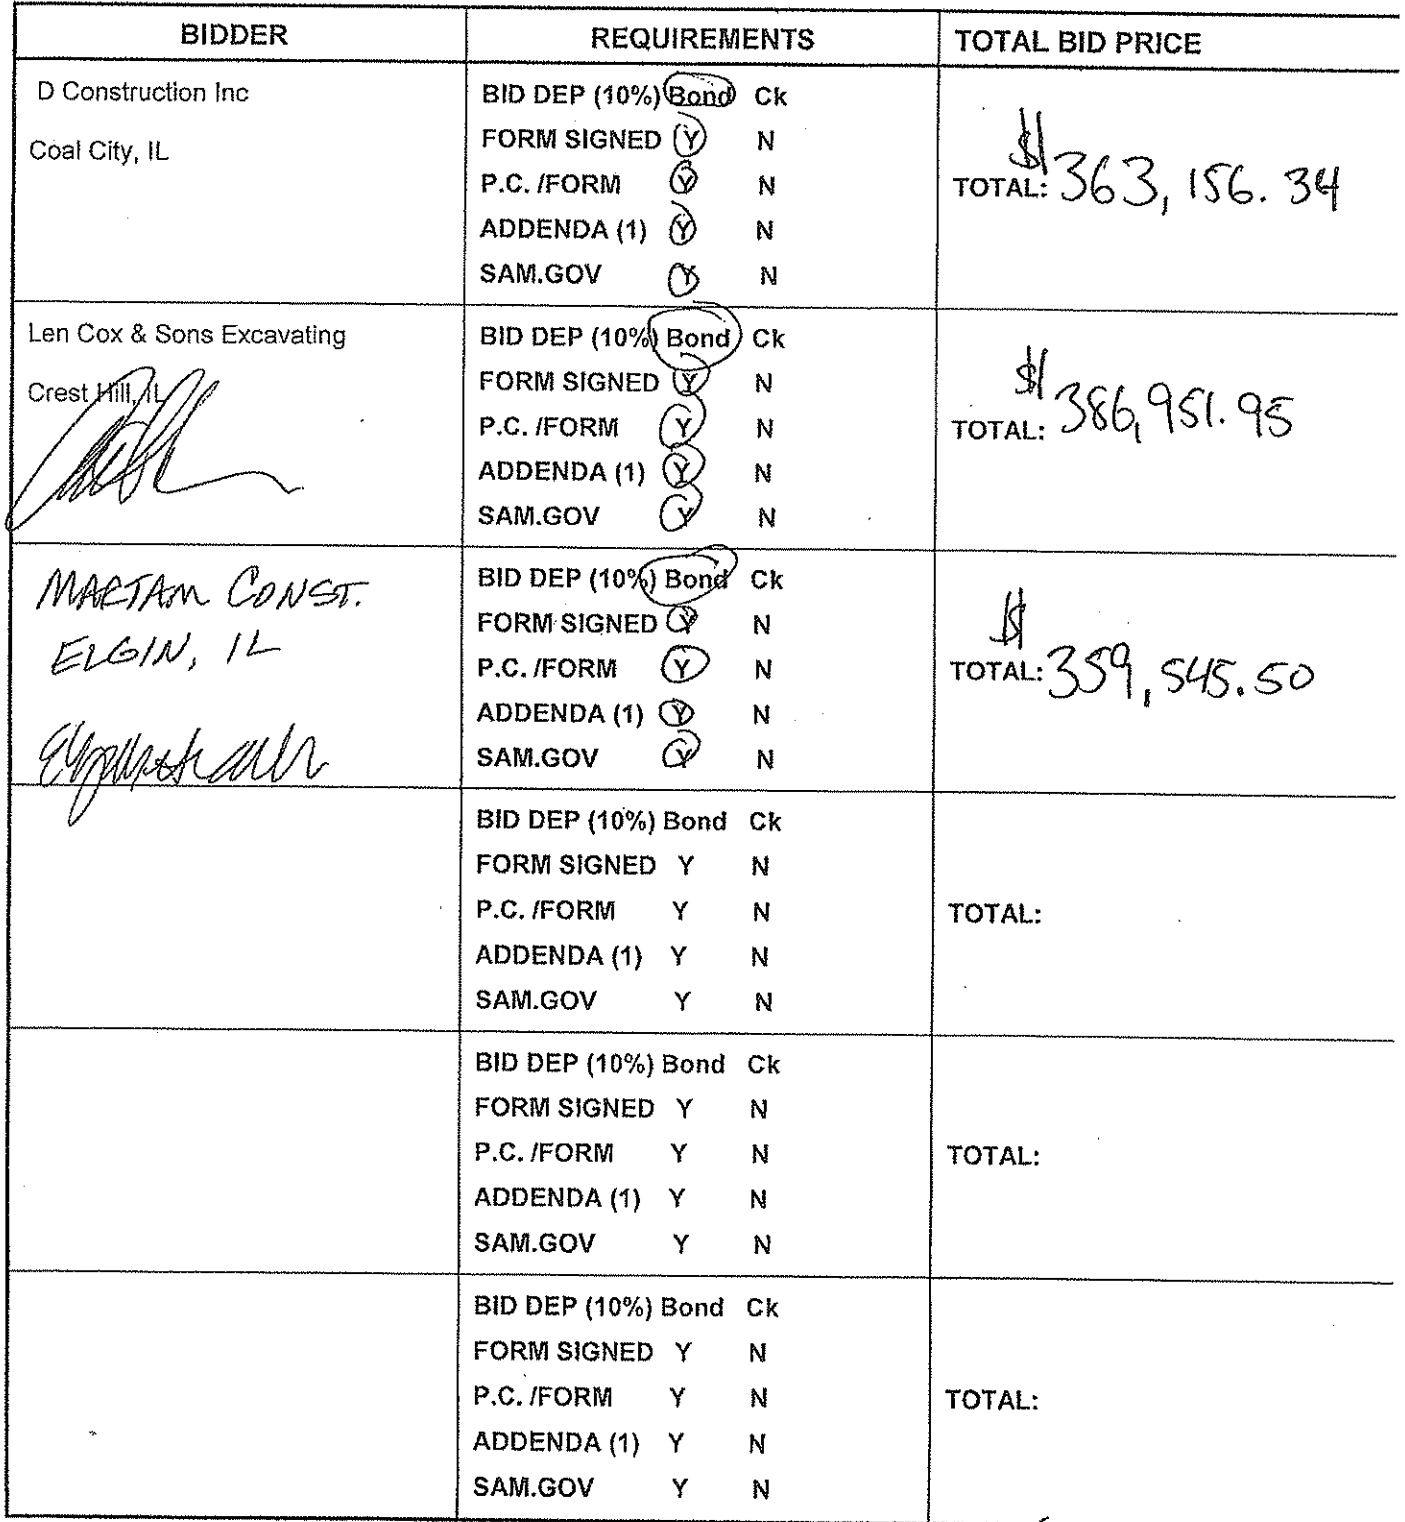 BIDDER REQUIREMENTS TOTAL BID PRICE
D Construction Inc
Coal City, IL
BID DEP (10%) Bond Ck
FORM SIGNED Y N
P.C. /FORM Y N
ADDENDA (1) Y N
SAM.GOV Y N
$
TOTAL: 363,156.34
Len Cox & Sons Excavating
Crest Hill, IL
BID DEP (10%) Bond Ck
FORM SIGNED Y N
P.C. /FORM Y N
ADDENDA (1) Y N
SAM.GOV Y N
$
TOTAL: 386,951.95
MARTAM CONST.
ELGIN, IL
BID DEP (10%) Bond Ck
FORM SIGNED Y N
P.C. /FORM Y N
ADDENDA (1) Y N
SAM.GOV Y N
$
TOTAL: 359,545.50
BID DEP (10%) Bond Ck
FORM SIGNED Y N
P.C. /FORM Y N
ADDENDA (1) Y N
SAM.GOV Y N
TOTAL:
BID DEP (10%) Bond Ck
FORM SIGNED Y N
P.C. /FORM Y N
ADDENDA (1) Y N
SAM.GOV Y N
TOTAL:
BID DEP (10%) Bond Ck
FORM SIGNED Y N
P.C. /FORM Y N
ADDENDA (1) Y N
SAM.GOV Y N
TOTAL: